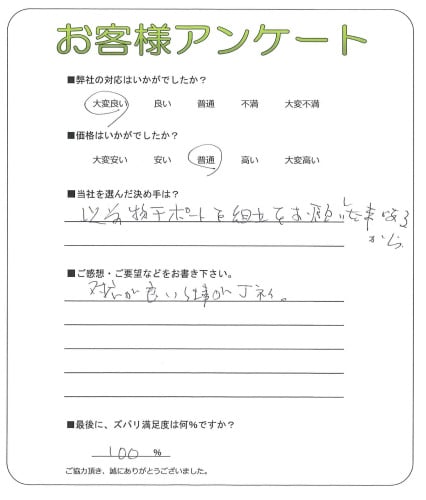 お客様アンケート
■弊社の対応はいかがでしたか？
大変良い 良い 普通 不満 大変不満
■価格はいかがでしたか？
大変安い 安い 普通 高い 大変高い
■当社を選んだ決め手は？
以前物干ポート組立をお願いした事有る
から
■ご感想・ご要望などをお書き下さい。
対応が良い仕事が丁ネイ。
■最後に、ズバリ満足度は何％ですか？
100 ％
ご協力頂き、誠にありがとうございました。